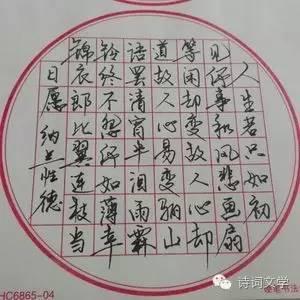 人生若只如初
见何事秋风悲画扇
等闲却变故人心却
道故人心易变骊山
语罢清宵半泪雨霖
铃终不怨何如薄幸
锦衣郎比翼连枝当
日愿 纳兰性德
HC6865-04
诗词文学